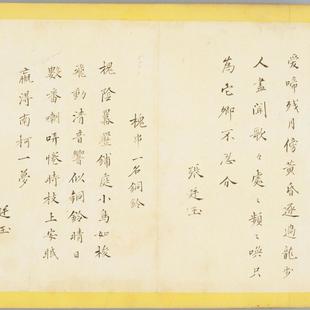 愛啼残月傍黃昏逐過龍
人盡聞歌々處々頻々喚只
為它鄉不忍分
張廷玉
槐串一名銅鈴
槐陰鋪庭小鳥如梭
飛動清音響似銅鈴晴日
數番哢倦時枝上安眠
贏得南柯一夢
廷玉